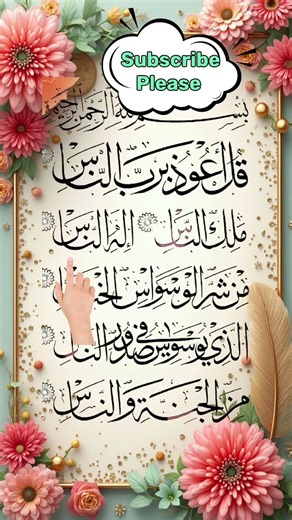 Subscribe
Please
بسم الله الرحمن الرحيم
قل أعوذ برب الناس
ملك الناس إله الناس
من شر الوسواس الخنا
الذي يوسوس في صدور الناس
من الجنة والناس